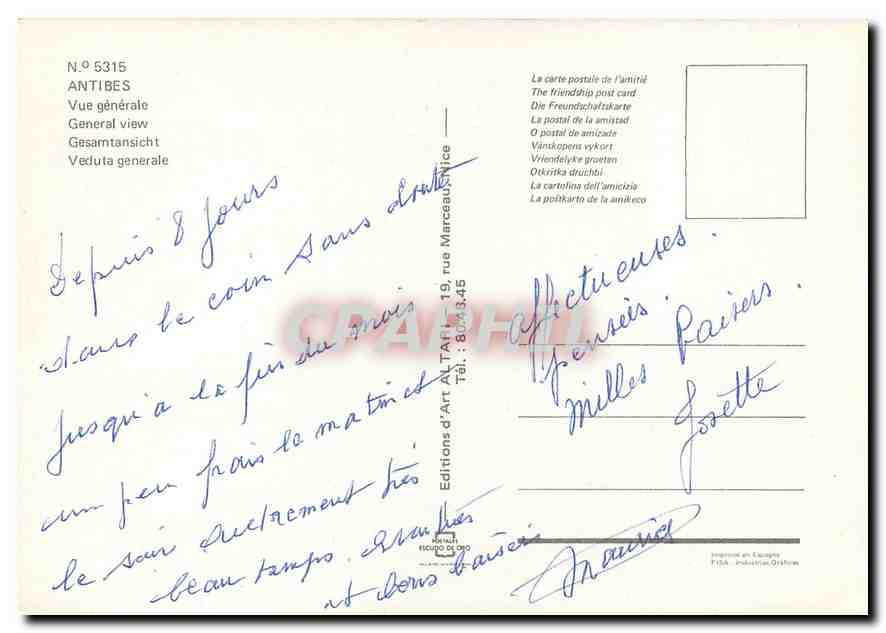 N.º 5315
ANTIBES
Vue générale
General view
Gesamtansicht
Veduta generale
Depuis 8 jours
dans le coin sans doute
jusqu'a la fin du mois
un peu frais le matin et
le soir autrement très
beau temps.
et bons baisers
Editions d'Art ALTARI - 19, rue Marceau, Nice
Tél. : 80.48.45
CPAPHIL
POSTALES
ESCUDO DE ORO
La carte postale de l'amitié
The friendship post card
Die Freundschaftskarte
La postal de la amistad
O postal de amizade
Vänskapens vykort
Vriendelyke groeten
Otkritka druchbi
La cartolina dell'amicizia
La poŝtkarto de la amikeco
affectueuses.
pensées.
milles baisers.
Josette
Imprimé en Espagne
FISA - Industrias Gráficas